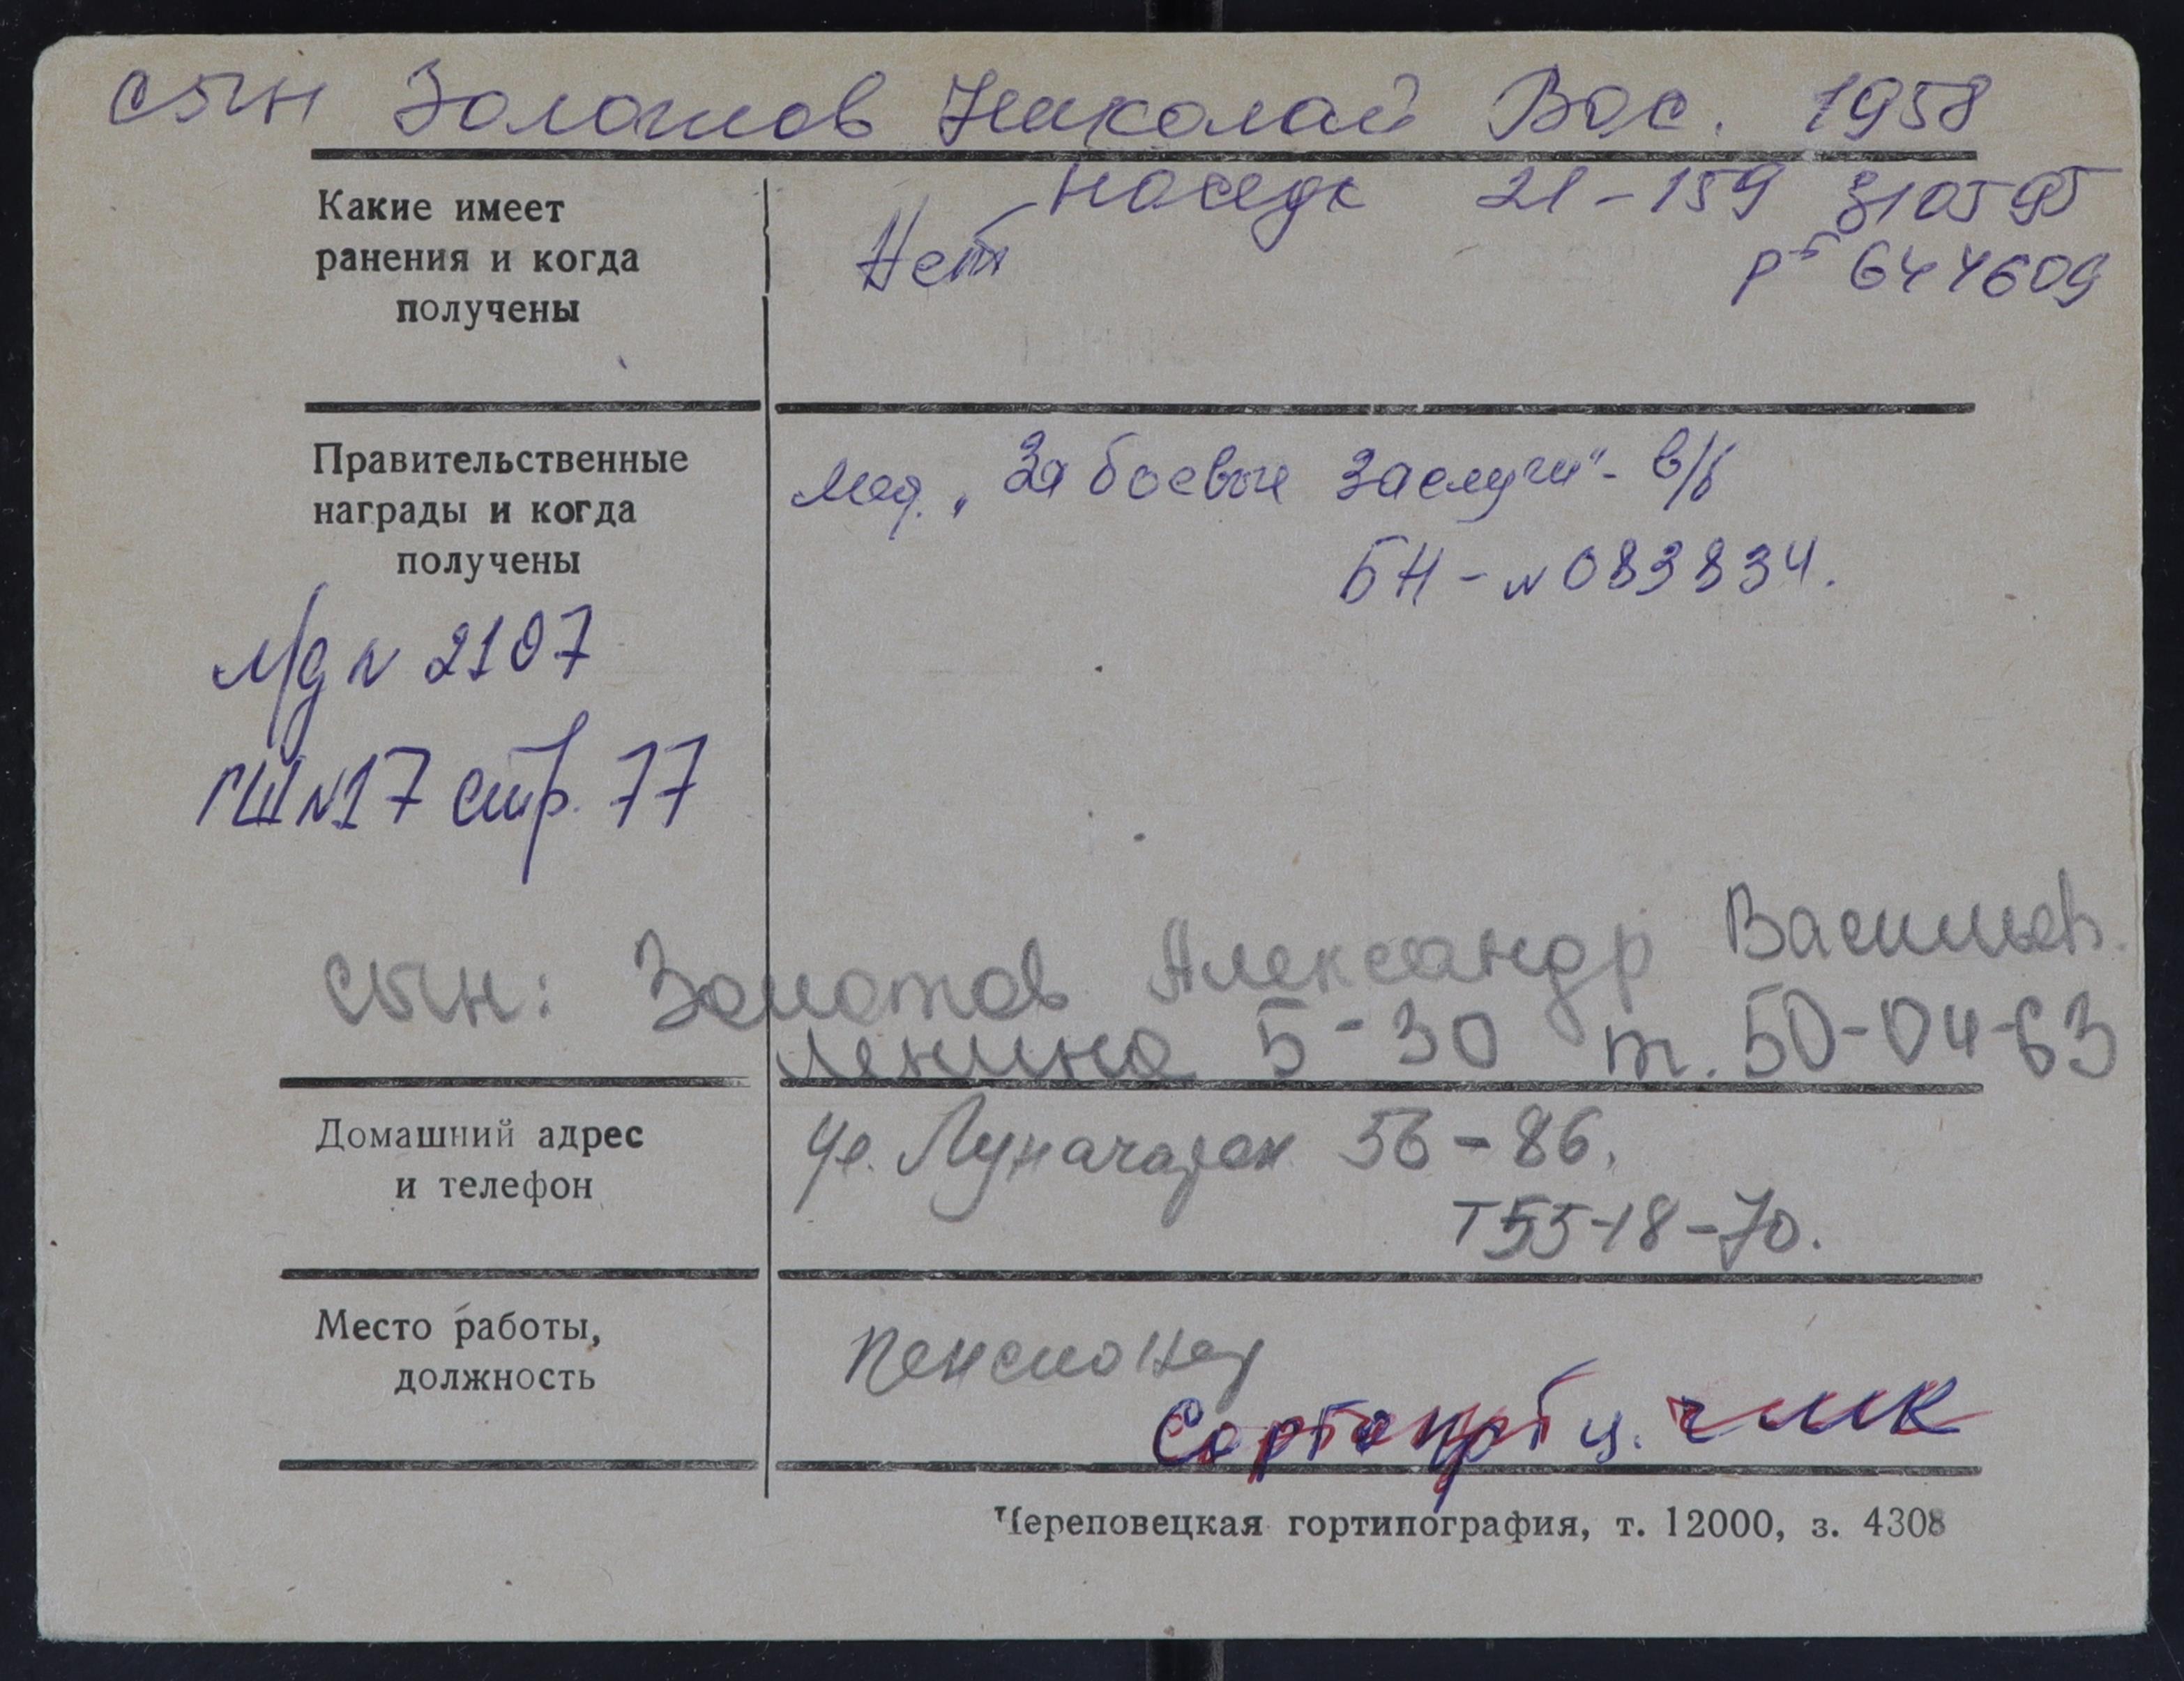 сын Золотов Николай Вас. 1958
Наседк 21-159 310595
Какие имеет
ранения и когда
получены
Нет
р5 644609
Правительственные
награды и когда
получены
Мед. „За боевые заслуги"- б/
БН - N 083834.
М/д N 2107
ГШ N17 стр. 77
сын: Золотов Александр Васильев.
Ленина 5-30 т. 50-04-63
Домашний адрес
и телефон
Ул. Луначарск 56-86.
Т 55-18-70.
Место работы,
должность
Пенсионер
Сортопр ц. ЧМК
Череповецкая гортипография, т. 12000, з. 4308